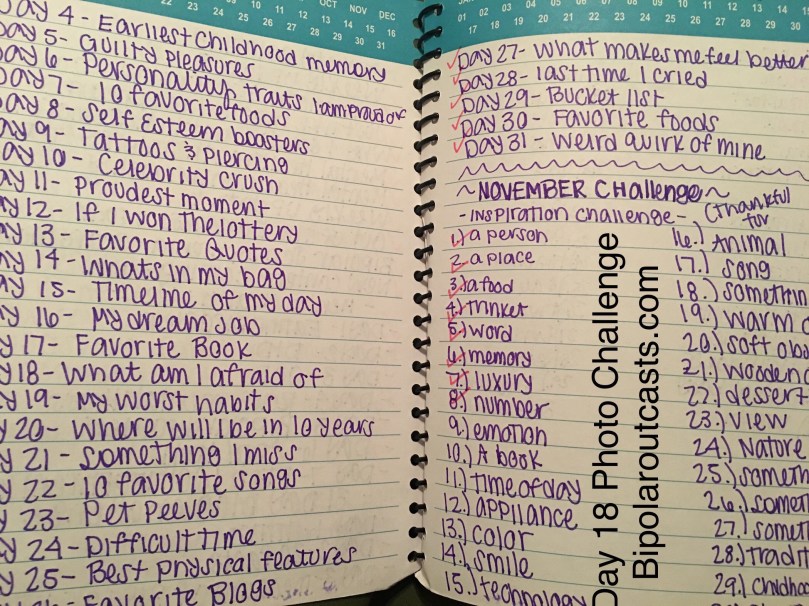 OCT NOV DEC
22 23 24 25 26 27 28 29 30 31
Day 4 - Earliest childhood memory
Day 5 - Guilty pleasures
Day 6 - Personality traits I am proud of
Day 7 - 10 favorite foods
Day 8 - Self Esteem boosters
Day 9 - Tattoos & piercing
Day 10 - Celebrity crush
Day 11 - Proudest moment
Day 12 - If I won the lottery
Day 13 - Favorite Quotes
Day 14 - Whats in my bag
Day 15 - Timeline of my day
Day 16 - My dream Job
Day 17 - Favorite Book
Day 18 - What am I afraid of
Day 19 - My worst habits
Day 20 - Where will I be in 10 years
Day 21 - Something I miss
Day 22 - 10 favorite songs
Day 23 - Pet Peeves
Day 24 - Difficult Time
Day 25 - Best physical features
Favorite Blogs
Day 27 - What makes me feel better
Day 28 - last time I cried
Day 29 - Bucket list
Day 30 - Favorite foods
Day 31 - Weird quirk of mine
~ NOVEMBER Challenge ~
- Inspiration challenge - (Thankful for
1.) a person
2. a place
3.) a food
4.) trinket
5.) word
6.) memory
7.) luxury
8.) number
9.) emotion
10.) A book
11.) time of day
12.) appliance
13.) color
14.) smile
15.) technology
16.) Animal
17.) song
18.) somethin
19.) warm
20.) soft
21.) wooden
22.) dessert
23.) view
24.) Nature
25.) someth
26.) somet
27.) somet
28.) tradit
29.) childho
Day 18 Photo Challenge
Bipolaroutcasts.com